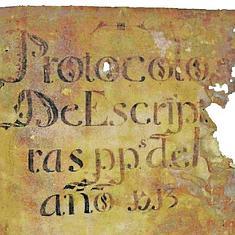 Protocolo
De Escrip
ras pp.s del
año